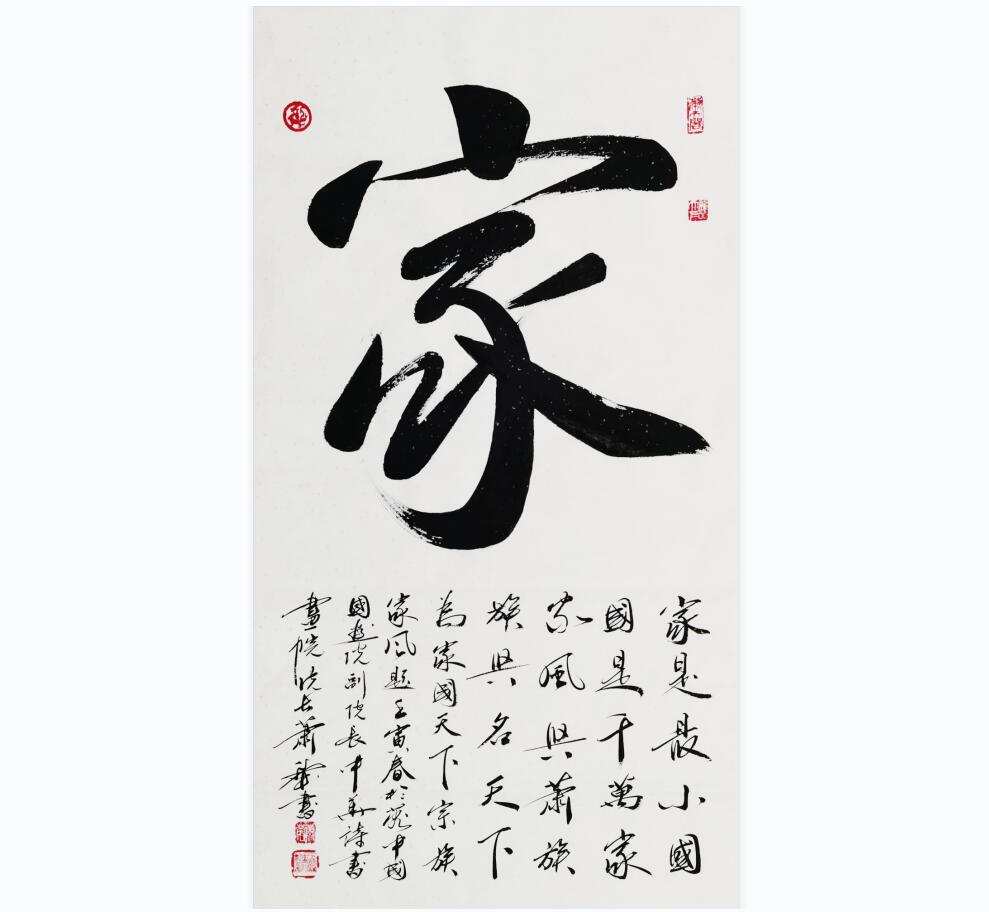 家
家是最小國
國是千萬家
家風興蕭族
族興名天下
為家國天下宗族
家风題壬寅春於中國
國院副院長中華詩書
畫院院长蕭書